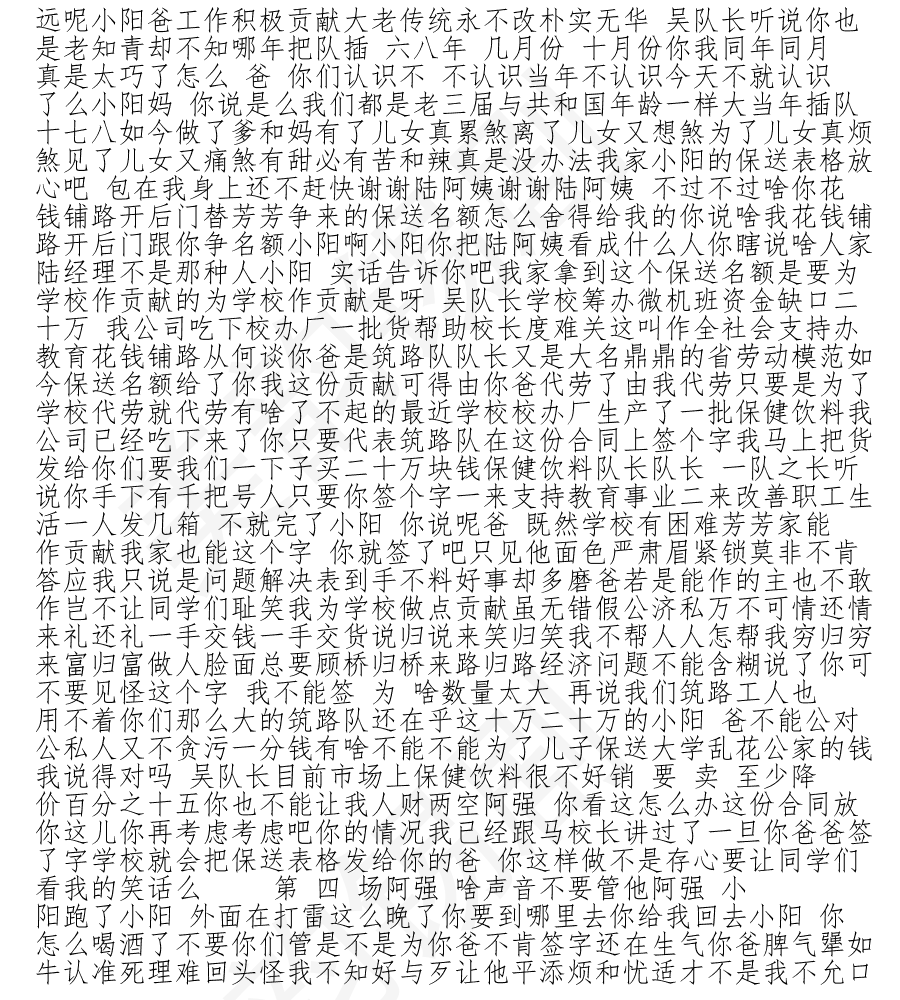 远呢小阳爸工作积极贡献大老传统永不改朴实无华 吴队长听说你也
是老知青却不知哪年把队插 六八年 几月份 十月份你我同年同月
真是太巧了怎么 爸 你们认识不 不认识当年不认识今天不就认识
了么小阳妈 你说是么我们都是老三届与共和国年龄一样大当年插队
十七八如今做了爹和妈有了儿女真累煞离了儿女又想煞为了儿女真烦
煞见了儿女又痛煞有甜必有苦和辣真是没办法我家小阳的保送表格放
心吧 包在我身上还不赶快谢谢陆阿姨谢谢陆阿姨 不过不过啥你花
钱铺路开后门替芳芳争来的保送名额怎么舍得给我的你说啥我花钱铺
路开后门跟你争名额小阳啊小阳你把陆阿姨看成什么人你瞎说啥人家
陆经理不是那种人小阳 实话告诉你吧我家拿到这个保送名额是要为
学校作贡献的为学校作贡献是呀 吴队长学校筹办微机班资金缺口二
十万 我公司吃下校办厂一批货帮助校长度难关这叫作全社会支持办
教育花钱铺路从何谈你爸是筑路队队长又是大名鼎鼎的省劳动模范如
今保送名额给了你我这份贡献可得由你爸代劳了由我代劳只要是为了
学校代劳就代劳有啥了不起的最近学校校办厂生产了一批保健饮料我
公司已经吃下来了你只要代表筑路队在这份合同上签个字我马上把货
发给你们要我们一下子买二十万块钱保健饮料队长队长 一队之长听
说你手下有千把号人只要你签个字一来支持教育事业二来改善职工生
活一人发几箱 不就完了小阳 你说呢爸 既然学校有困难芳芳家能
作贡献我家也能这个字 你就签了吧只见他面色严肃眉紧锁莫非不肯
答应我只说是问题解决表到手不料好事却多磨爸若是能作的主也不敢
作岂不让同学们耻笑我为学校做点贡献虽无错假公济私万不可情还情
来礼还礼一手交钱一手交货说归说来笑归笑我不帮人人怎帮我穷归穷
来富归富做人脸面总要顾桥归桥来路归路经济问题不能含糊说了你可
不要见怪这个字 我不能签 为 啥数量太大 再说我们筑路工人也
用不着你们那么大的筑路队还在乎这十万二十万的小阳 爸不能公对
公私人又不贪污一分钱有啥不能不能为了儿子保送大学乱花公家的钱
我说得对吗 吴队长目前市场上保健饮料很不好销 要 卖 至少降
价百分之十五你也不能让我人财两空阿强 你看这怎么办这份合同放
你这儿你再考虑考虑吧你的情况我已经跟马校长讲过了一旦你爸爸签
了字学校就会把保送表格发给你的爸 你这样做不是存心要让同学们
看我的笑话么 第 四 场阿强 啥声音不要管他阿强 小
阳跑了小阳 外面在打雷这么晚了你要到哪里去你给我回去小阳 你
怎么喝酒了不要你们管是不是为你爸不肯签字还在生气你爸脾气犟如
牛认准死理难回头怪我不知好与歹让他平添烦和忧适才不是我不允口